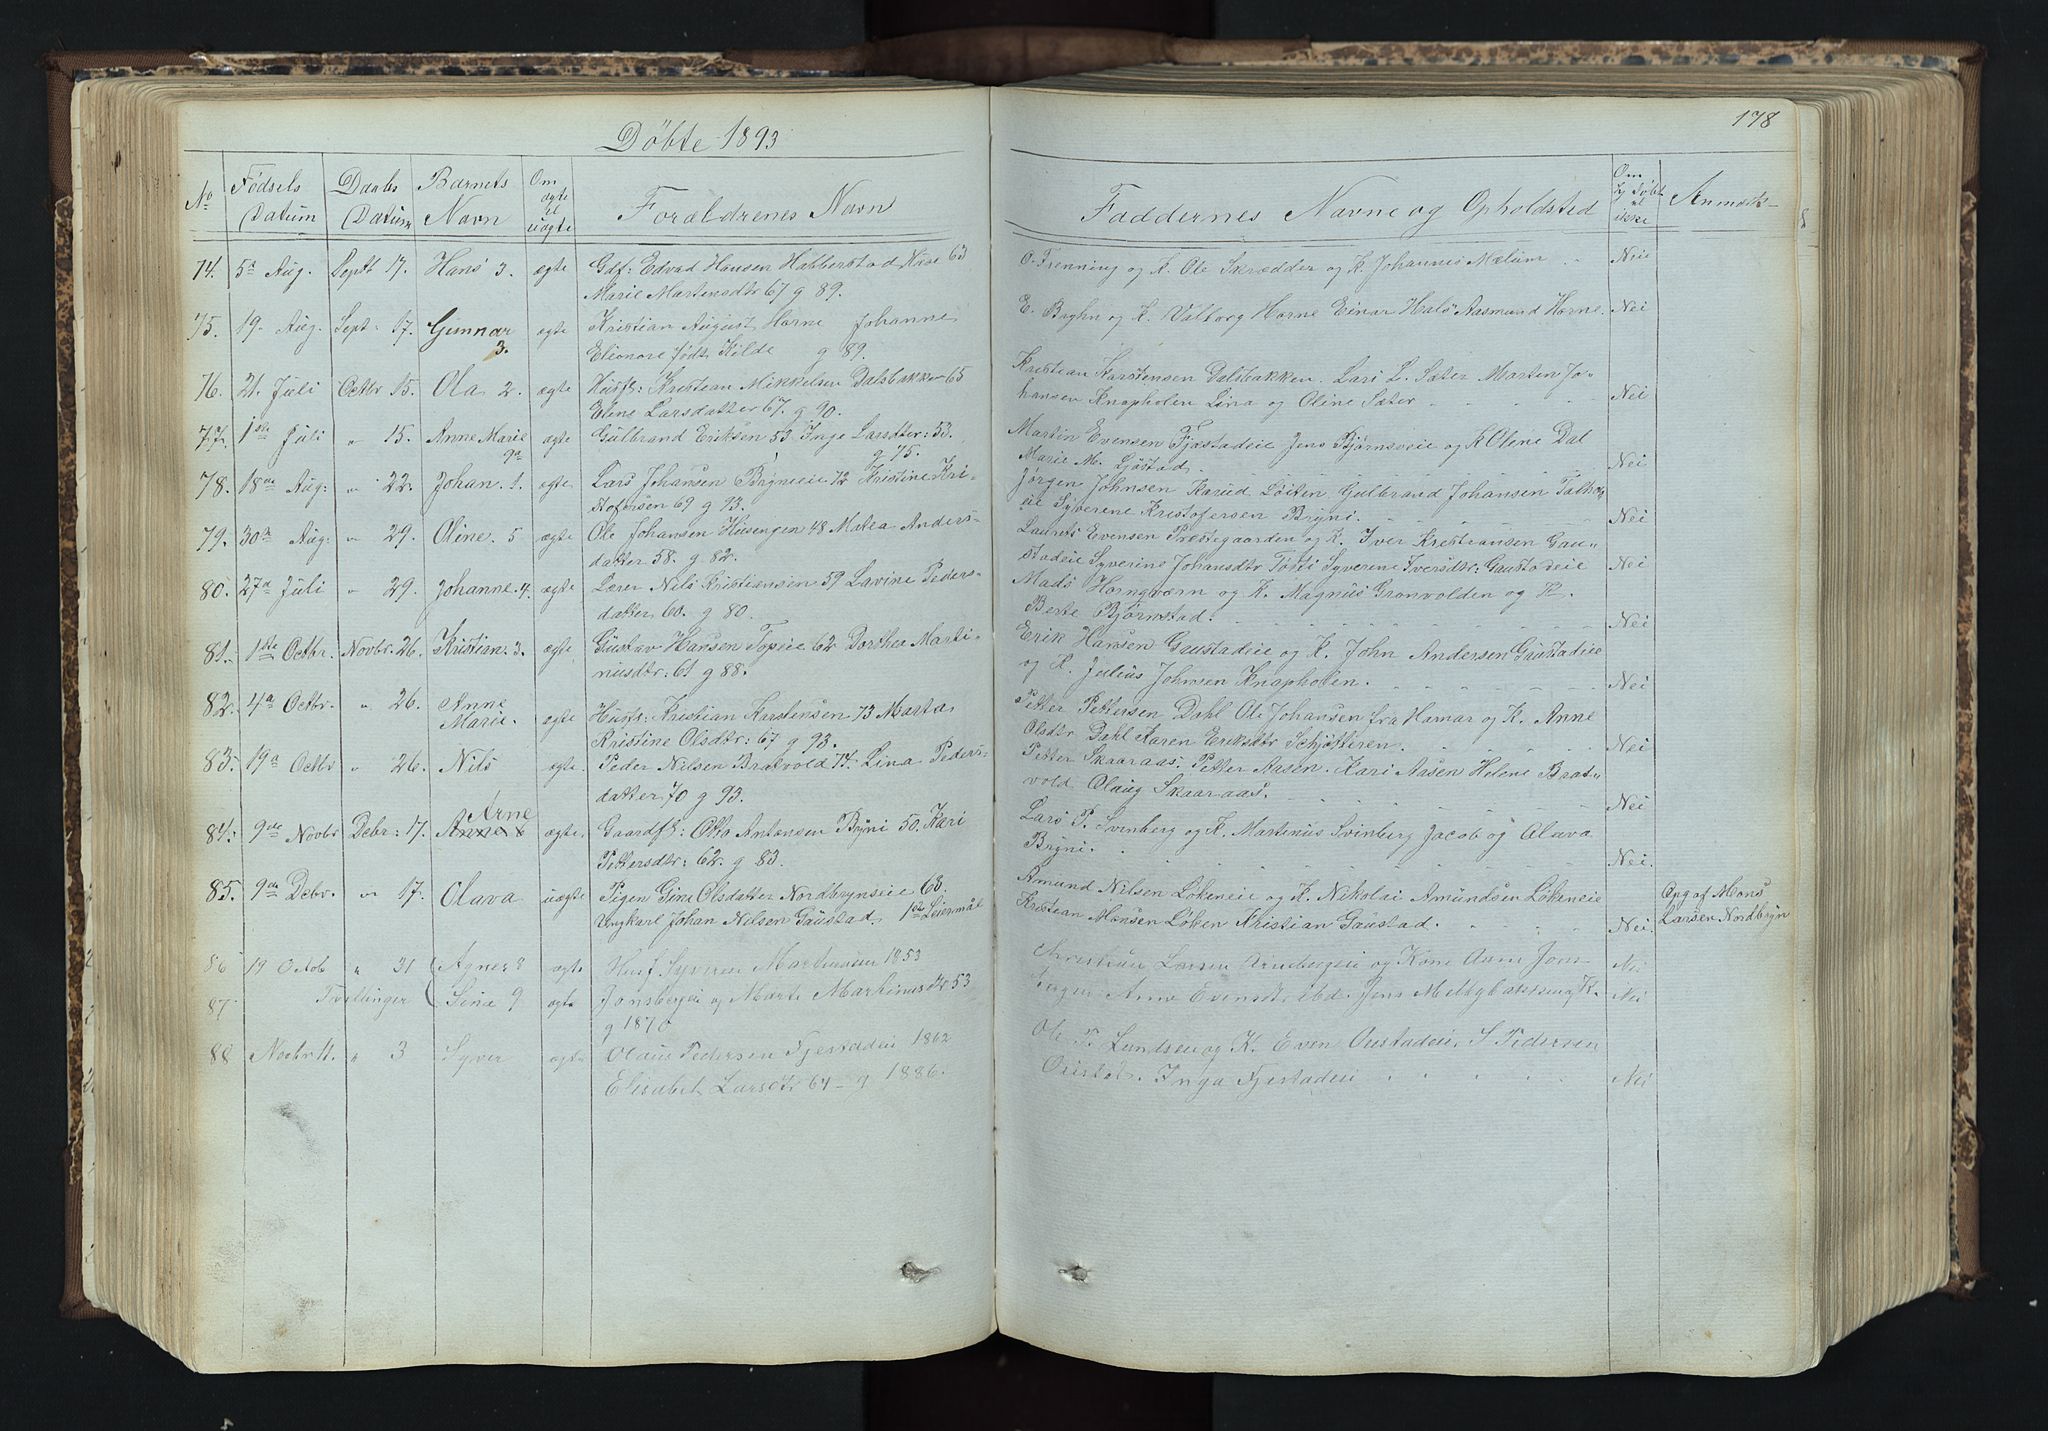 Döbte 1893
178
No
Fødsels Datum
Daabs Datum
Barnets Navn
Om ægte el uægte
Forældrenes Navn
Faddernes Navne og Opholdsted
Anmærk-
74. 5te Aug. Septb 17. Hans 3. ægte Gdf: Edvad Hansen Habberstad 63
Marie Martensdtr 67 g 89.
O. Frenning og K. Ole Skrædder og K. Johannes Mælum Nei
75. 19. Aug. Sept. 17. Gunnar 3. ægte Kristian August Horne Johanne
Eleonore föds Kilde g 89.
E. Baghn og K. Valborg Horne Einar Hals Aasmund Horne. Nei
76. 21. Juli Octbr 15. Ola 2. ægte Husf: Kristian Mikkelsen Dalsbakken 65
Eline Larsdatter 67. g 90.
Kristian Karstensen Dalsbakken. Lars L. Sæter Marten Jo-
hansen Knapholen Lina og Oline Sæter Nei
77. 1ste Juli " 15. Anne Marie 9de ægte Gulbrand Eriksen 53 Inge Larsdtter: 53.
g 75.
Martin Evensen Fjæstadeie Jens Bjørnseie og K Olene Dal
Marie M. Gjøstad Nei
78. 18de Aug: " 22. Johan. 1. ægte Lars Johansen Brynieie 72 Kristine Kri-
stofersen 69 g 93.
Jørgen Johnsen Karud Løiten Gulbrand Johansen
eie Syverene Kristofersen Bryni. Nei
79. 30te Aug: " 29. Oline. 5 ægte Ole Johansen Husengen 48 Matea Anders-
datter 58. g 82.
Laurits Evensen Prestegaarden og K. Iver Kristiansen Gau-
stadeie Syverine Johansdtr Tosti Syverene Iversdtr: Gaustadeie Nei
80. 27de Juli " 29. Johanne. 4. ægte Lærer Nils Kristiansen 59 Lavine Peders-
datter 60. g 80.
Mads Horngværn og K. Magnus Gronvolden og K.
Berte Bjørnstad. Nei
81. 1ste Octbr. Novbr. 26. Kristian. 3. ægte Gustav Hansen Topeie 62 Dorthea Marti-
nusdtr: 61 g 88.
Erik Hansen Gaustadeie og K. John Andersen Gaustadeie
og K. Julius Johnsen Knapholen. Nei
82. 4de Octbr. " 26. Anne Marie. ægte Husf: Kristian Karstensen 73 Marta
Kristine Olsdtr: 67 g 93.
Petter Pettersen Dahl Ole Johansen fra Hamar og K. Anne
Olsdtr Dahl Karen Eriksdtr Schjötteren. Nei
83. 19de Octbr " 26. Nils ægte. Peder Nilsen Bratvold 74. Lina Peders-
datter 70 g 93.
Petter Skaaraas. Petter Aasen. Kari Aasen Helene Brat-
vold Olaug Skaaraas. Nei
84. 9de Novbr Debr: 17. Arne ægte. Gaardf: Otto Antonsen Bryni 50. Kari
Pettersdtr: 62. g 83.
Lars P. Svenberg og K. Martinus Svinberg Jacob og Olava
Bryni. Nei.
85. 9de Debr. " 17. Olava uægte Pigen Gina Olsdatter Nordbrynseie 68.
Ungkarl Johan Nilsen Gaustad. 1ste Leiermål
Amund Nilsen Løkeneie og K. Nikolai Amundsen Løkeneie
Kristian Monsen Løken Kristian Gaustad. Nei.
Opg af Mons Larsen Nordbryn
86 19 Octob " 31 Agnes 8 ægte Husf Syveren Martinusen 1853 Nei
87 Tvillinger Lina 9 ægte Jonsbergeie og Marte Martinusdtr. 53 Nei
g 1870
88 Novbr 11. " 3 Syver ægte Olaus Pedersen Fjestadeie 1862
Elisabet Larsdtr 64 - g 1886.
Ole P. Lundseie og K. Even Gustadeie, S Pedersen
Inga Fjestadeie Nei